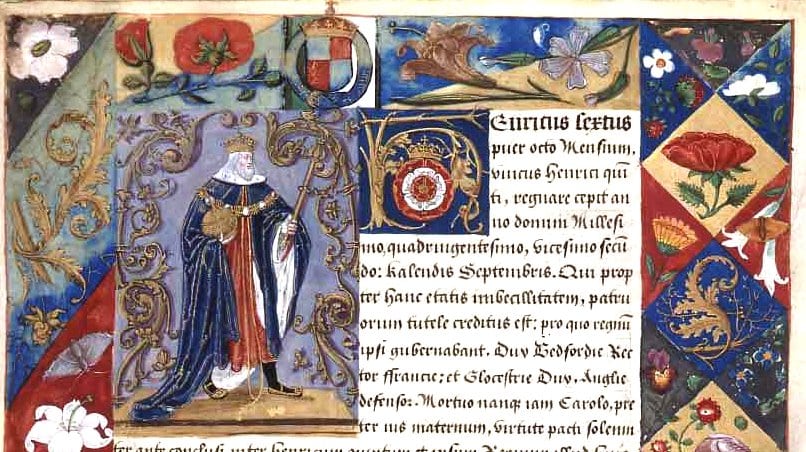 Henricus sextus
puer octo Mensium,
vnicus Henrici quĩ
ti, regnare cepit an
no domini Millesi
mo, quadringentesimo, vicesimo secũ
do: kalendis Septembris. Qui prop
ter hanc etatis imbecillitatem, patru
orum tutele creditus est: pro quo regnũ
ipsi gubernabant. Dux Bedfordie Rec
tor ffrancie; et Glocestrie Dux, Anglie
defensor. Mortuo nanque iam Carolo, pre
ter ius maternum, virtute pacti solenni
ter ante conclusi inter henricum quintum et ipsum